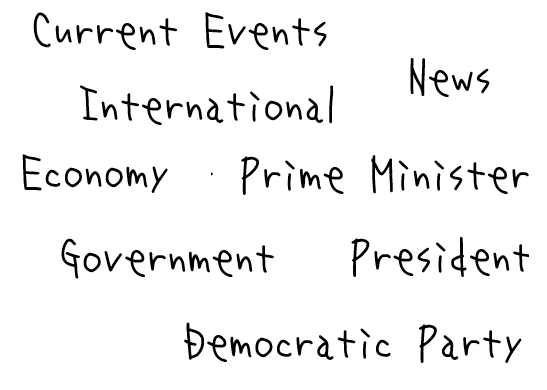 Current Events
News
International
Economy · Prime Minister
Government President
Democratic Party